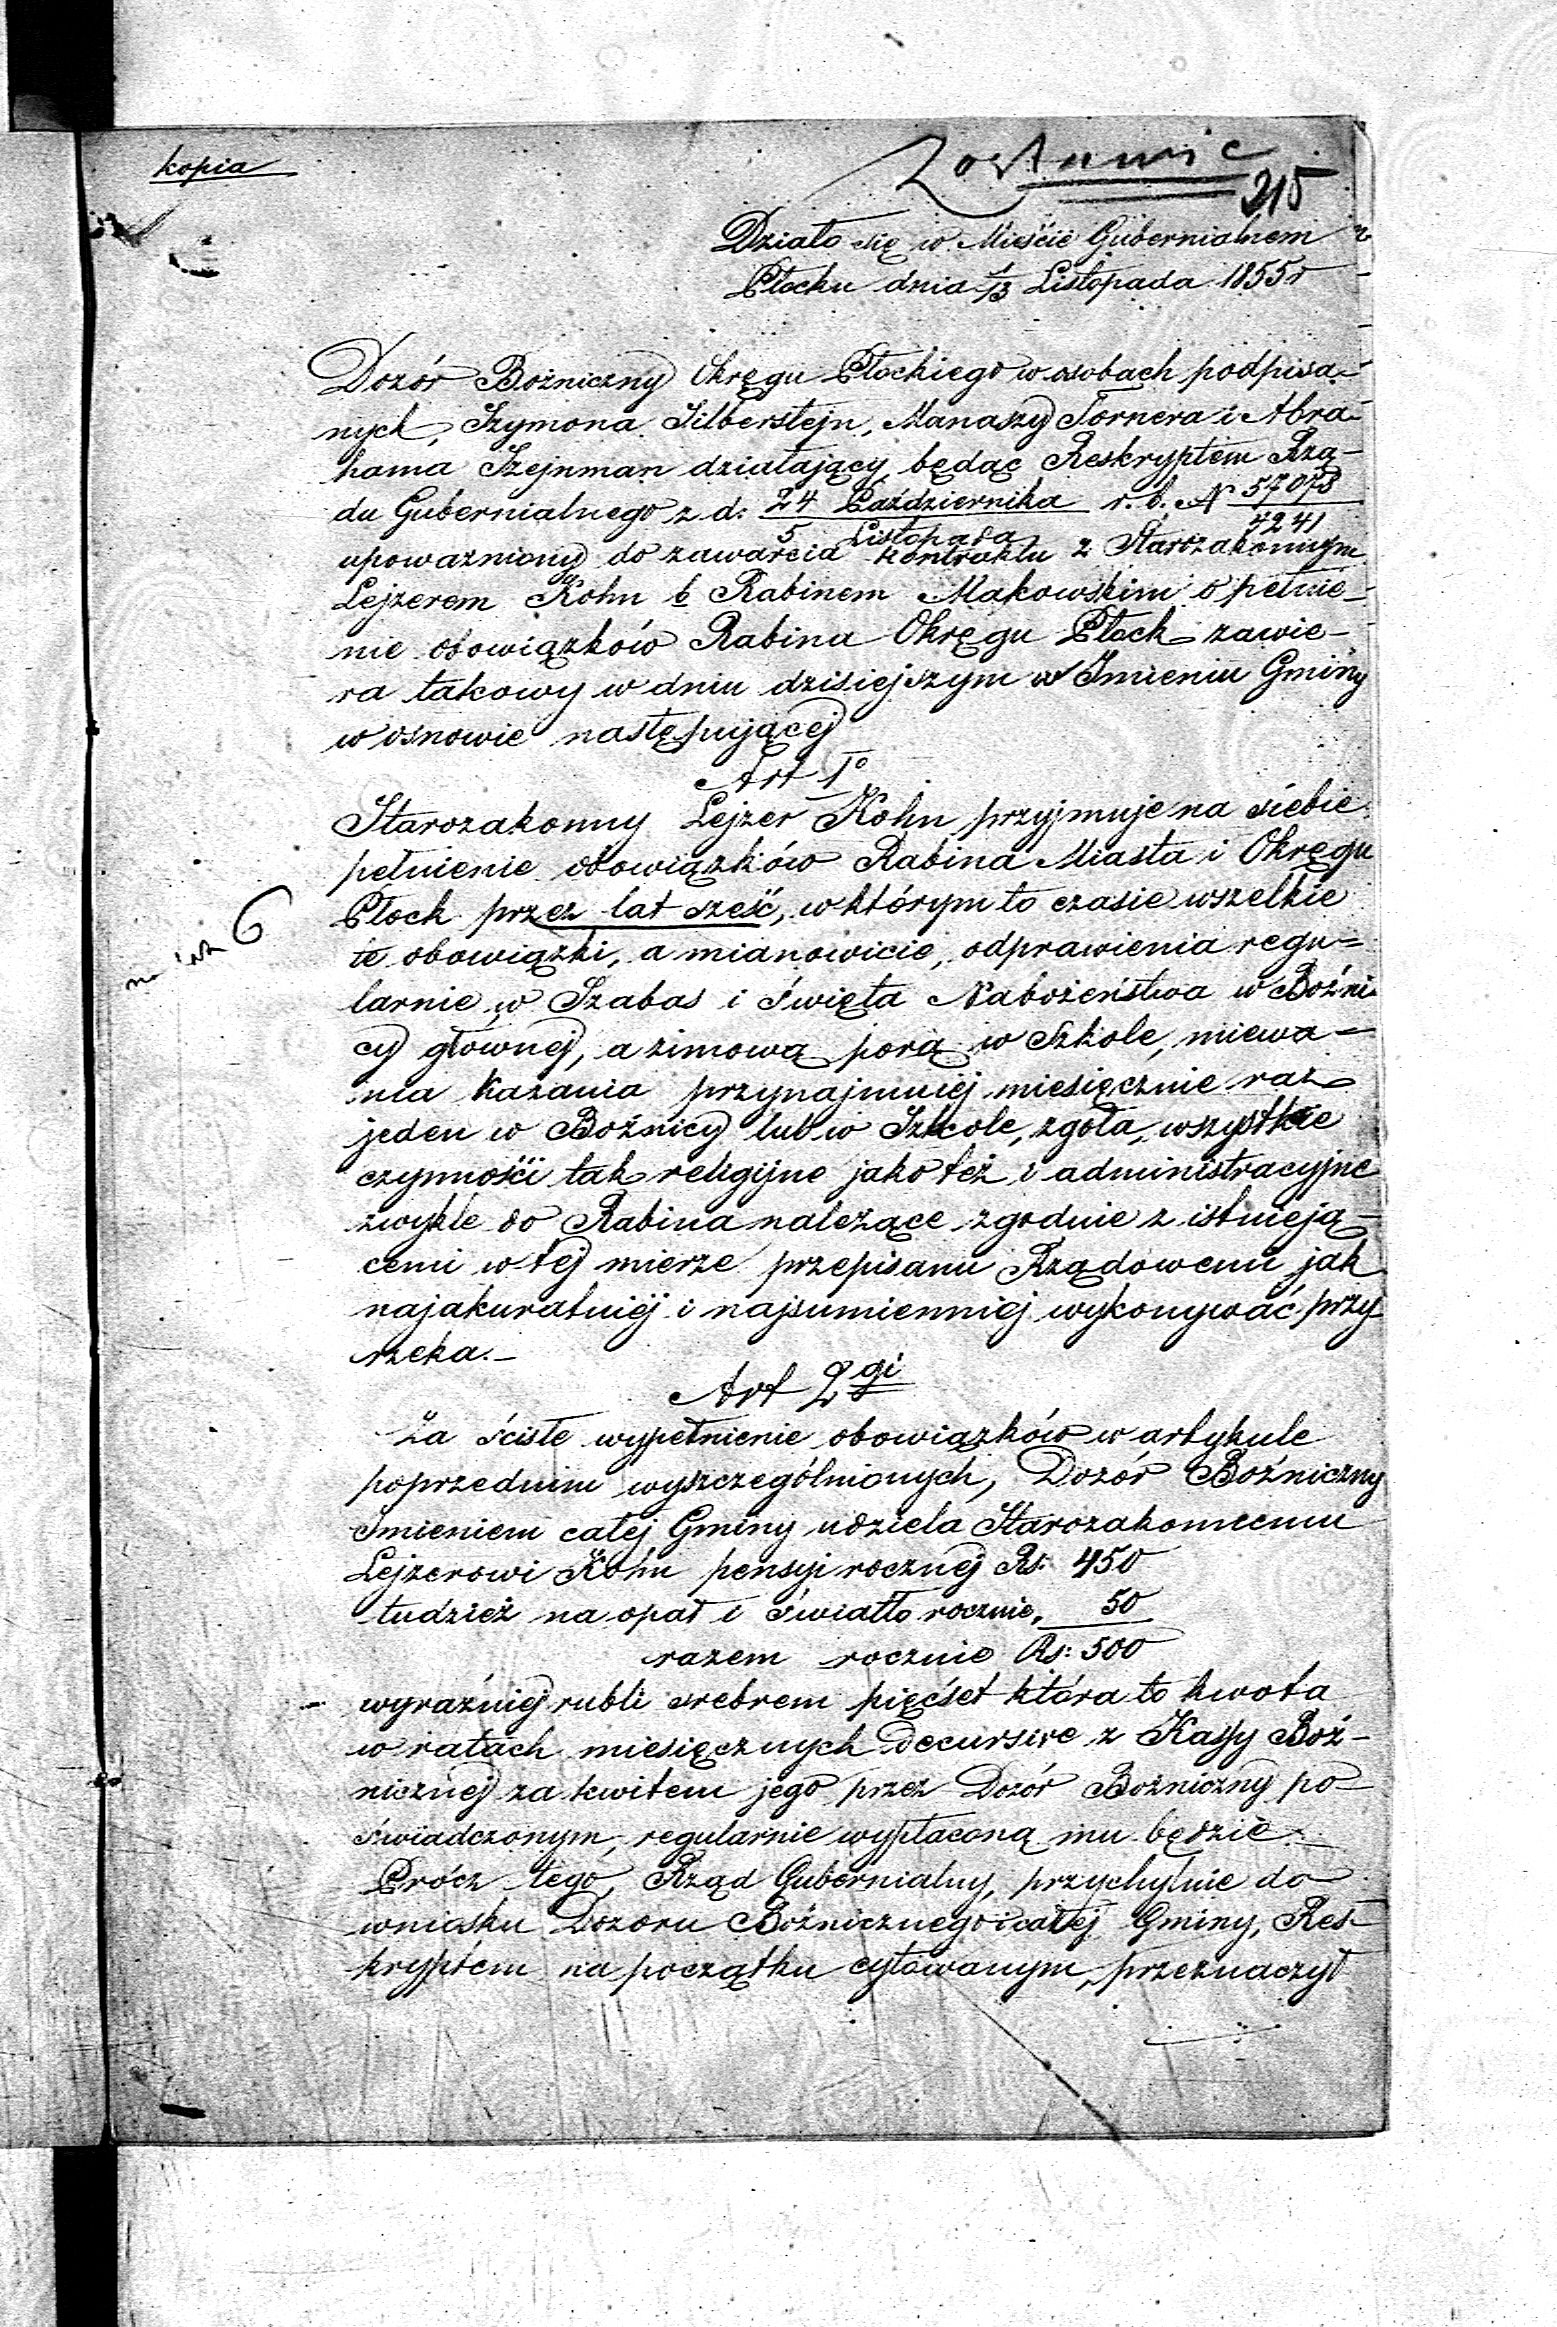 kopia
Zostawić
215
Działo się w Mieście Gubernialnem
Płocku dnia 1/13 Listopada 1855 r
Dozór Bożniczny Okręgu Płockiego w osobach podpisa-
nych, Szymona Silberstejn, Manaszy Tornera i Abra-
hama Szejnman działający, będąc Reskryptem Rzą-
du Gubernialnego z d. 24 Października r. b. N 57073
5 Listopada 4241
upoważniony do zawarcia kontraktu z Starozakonnym
Lejzerem Kohn b Rabinem Makowskim o pełnie-
nie obowiązków Rabina Okręgu Płock zawie-
ra takowy w dniu dzisiejszym w Imieniu Gminy
w osnowie następującej
Art 1o
Starozakonny Lejzer Kohn przyjmuje na siebie
pełnienie obowiązków Rabina Miasta i Okręgu
Płock przez lat sześć, w którym to czasie wszelkie
na lat 6
te obowiązki, a mianowicie, odprawienia regu-
larnie w Szabas i święta Nabożeństwa w Bożni-
cy głównej, a zimową porą w Szkole, miewa-
nia kazania przynajmniéj miesięcznie raz
jeden w Bożnicy lub w Szkole, zgoła, wszystkie
czynności tak religijne jako też i administracyjne
zwykle do Rabina należące zgodnie z istnieją-
cemi w tej mierze przepisami Rządowemi jak
najakuratniéj i najsumienniej wykonywać przy-
rzeka.-
Art 2gi
Za ścisłe wypełnienie obowiązków w artykule
poprzednim wyszczególnionych, Dozór Bożniczny
Imieniem całej Gminy udziela Starozakonnemu
Lejzerowi Kohn pensyi rocznej Rs: 450
tudzież na opał i światło rocznie, 50
razem rocznie Rs: 500
wyraźniej rubli srebrem pięćset która to kwota
w ratach miesięcznych decursive z Kassy Boż-
nicznej za kwitem jego przez Dozór Bożniczny po-
świadczonym, regularnie wypłaconą mu będzie.
Prócz tego, Rząd Gubernialny, przychylnie do
wniosku Dozoru Bożnicznego i całej Gminy, Res-
kryptem na początku cytowanym, przeznaczył